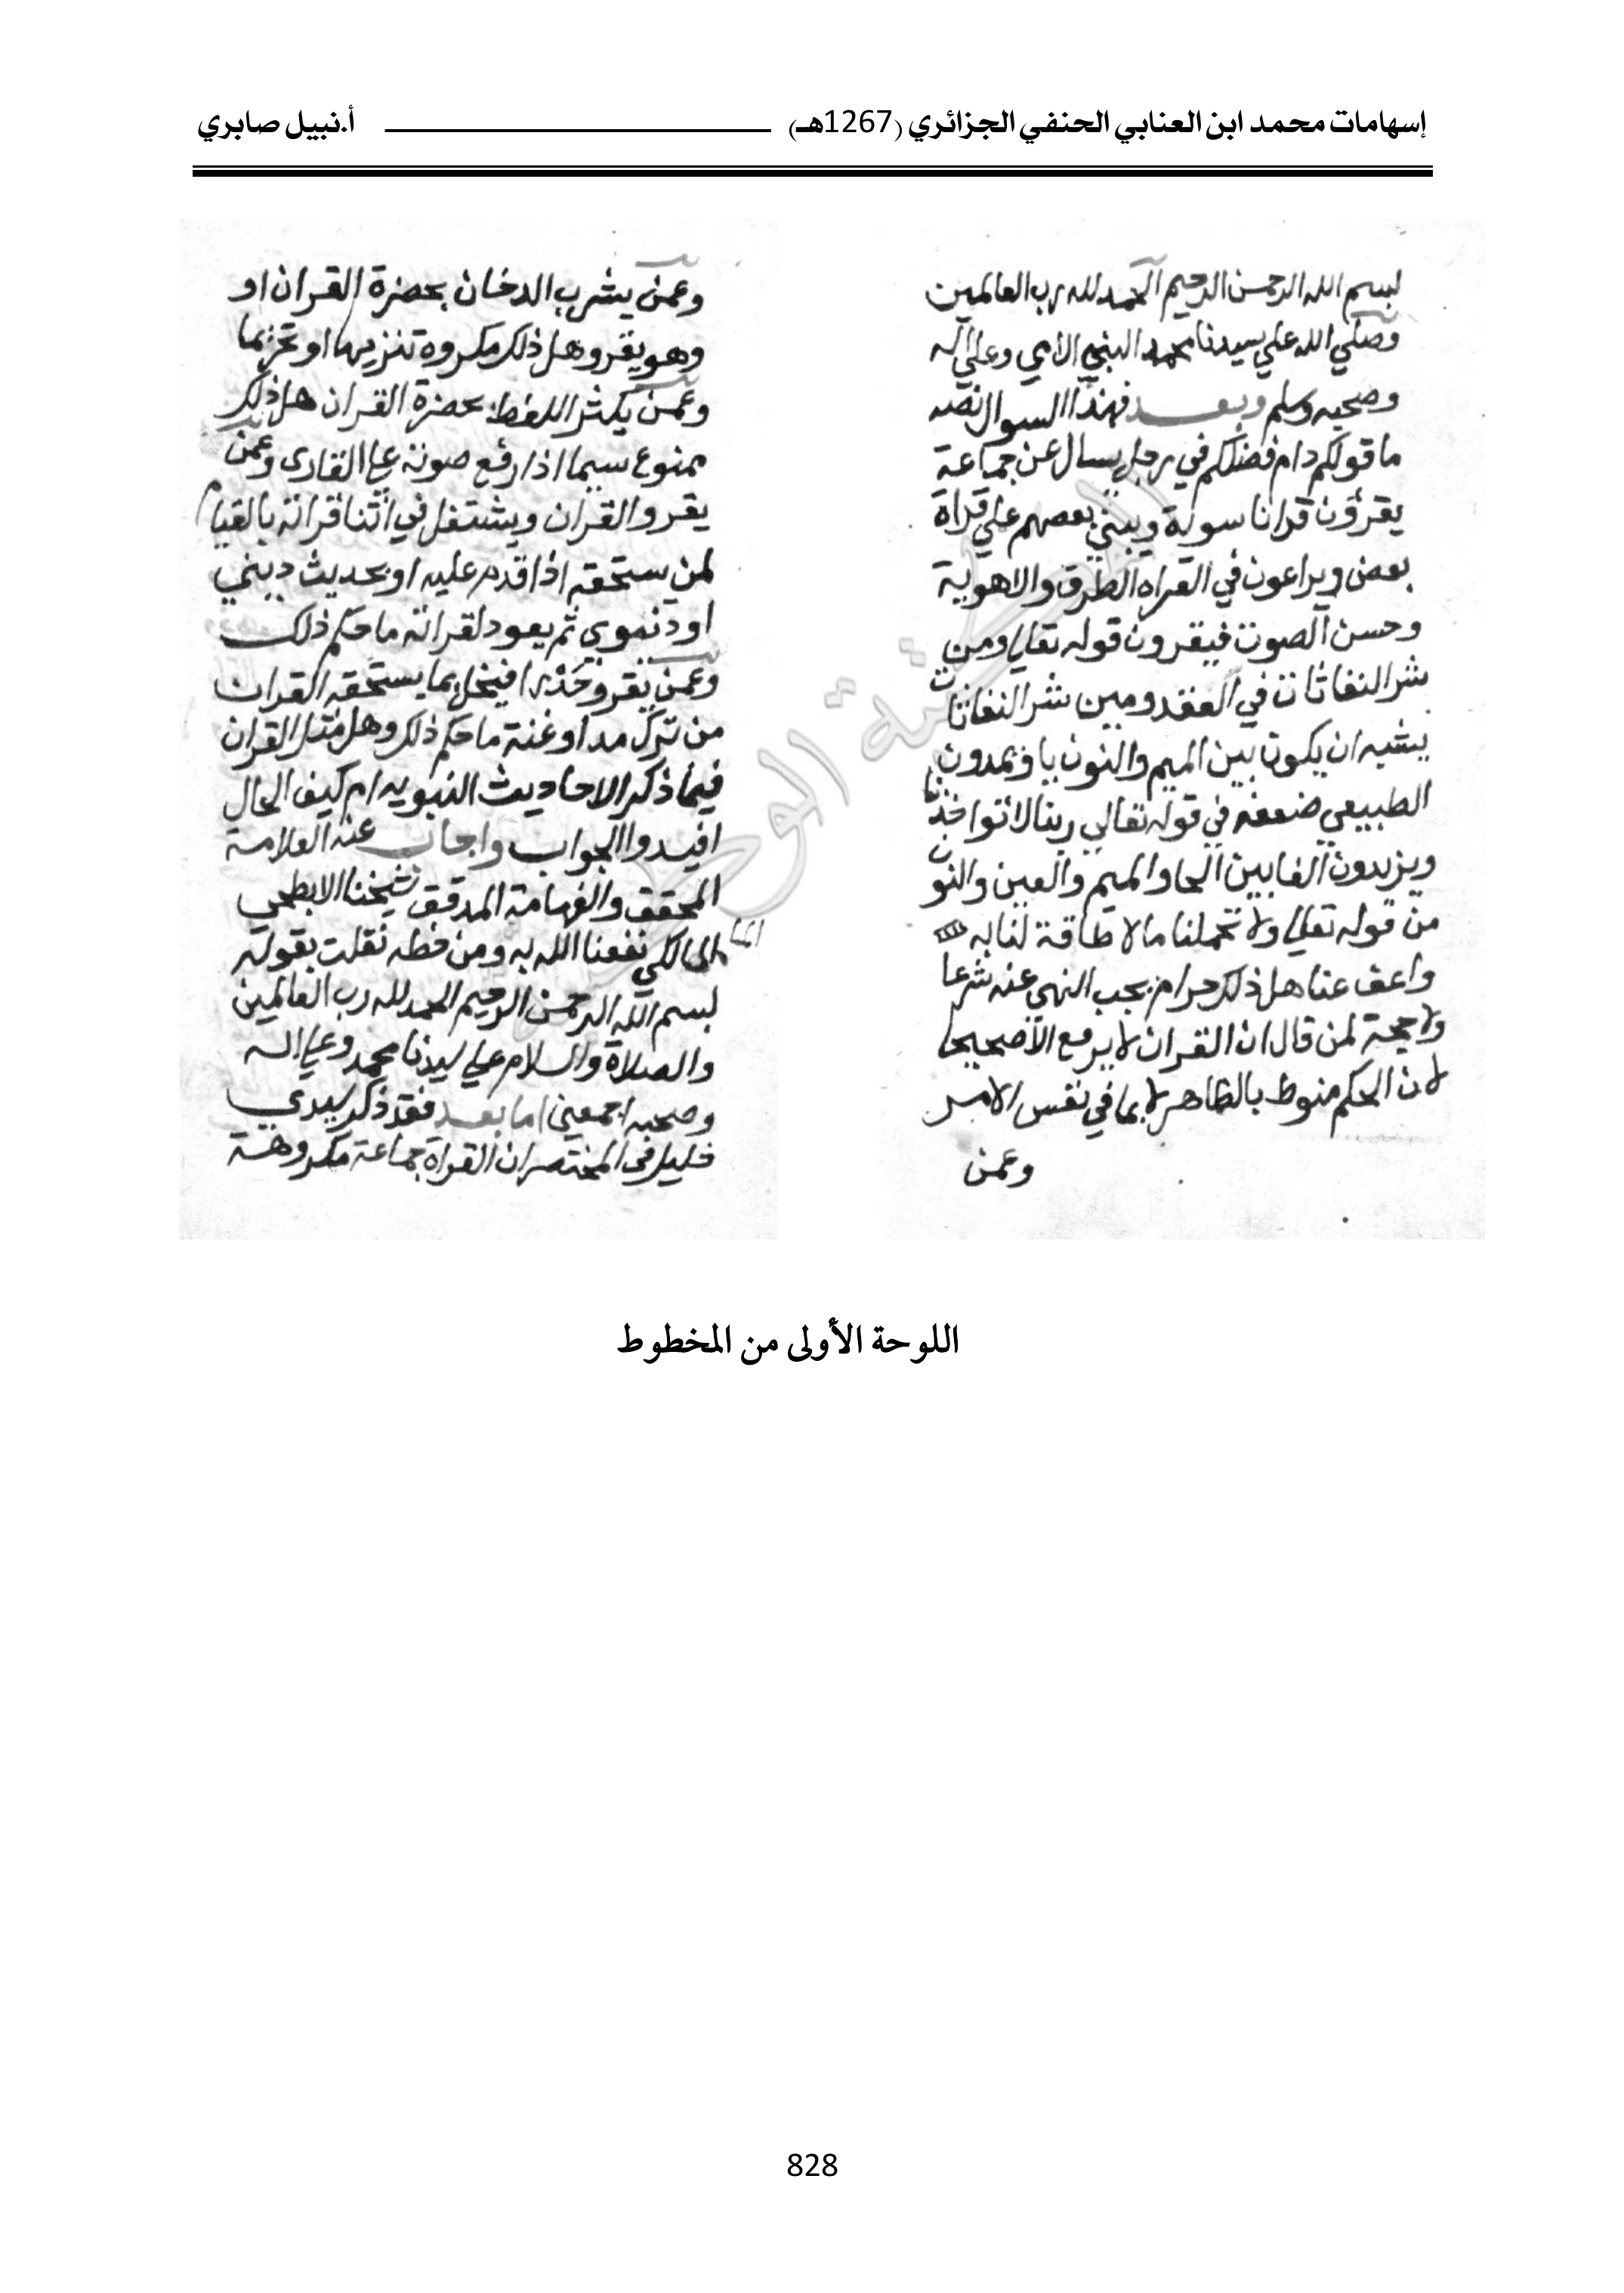 إسهامات محمد ابن العنابي الحنفي الجزائري (1267هـ) أ.نبيل صابري
بسم الله الرحمن الرحيم الحمد لله رب العالمين
وصلي الله علي سيدنا محمد النبي الامي وعلي اله
وصحبه وسلم وبعد فهذا السوال نصه
ما قولكم دام فضلكم في رجل يسال عن جماعة
يقرؤن قرانا سوية ويبني بعضهم علي قراة
بعض ويراعون في القراه الطرق والاهوية
وحسن الصوت فيقرون قوله تعالي ومن
شر النفاثات في العقد ومين شر النفاثات
يشبه ان يكون بين الميم والنون يا ويمدون
الطبيعي ضعفه في قوله تعالي ربنا لا تواخذنا
ويزيدون الفا بين الحا والميم والعين والنون
من قوله تعالي ولا تحملنا ما لا طاقة لنا به
واعف عنا هل ذلك حرام يجب النهي عنه شرعا
ولا حجة لمن قال ان القران لا يرفع الا صحيحا
لان الحكم منوط بالظاهر لا بما في نفس الامر
وعمن
وعمن يشرب الدخان بحضرة القران او
وهو يقرو هل ذلك مكروه تنزيها او تحريما
وعمن يكثر اللغط بحضرة القران هل ذلك
ممنوع سيما اذا رفع صوته علي القاري وعمن
يقرو القران ويشتغل في اثنا قراته بالقيام
لمن يستحقه اذا قدم عليه او بحديث ديني
او دنيوي ثم يعود لقراته ما حكم ذلك
وعمن يقرو حدرا فيخل بما يستحقه القران
من ترك مد او غنة ما حكم ذلك وهل مثل القران
فيما ذكر الاحاديث النبويه ام كيف الحال
افيدوا الجواب واجاب عنه العلامة
المحقق والفهامة المدقق شيخنا الابطحي
المالكي نفعنا الله به ومن خطه نقلت بقوله
بسم الله الرحمن الرحيم الحمد لله رب العالمين
والصلاة والسلام علي سيدنا محمد وعلي اله
وصحبه اجمعين اما بعد فقد ذكر سيدي
خليل في المختصر ان القراة جماعة مكروهة
اللوحة الأولى من المخطوط
828